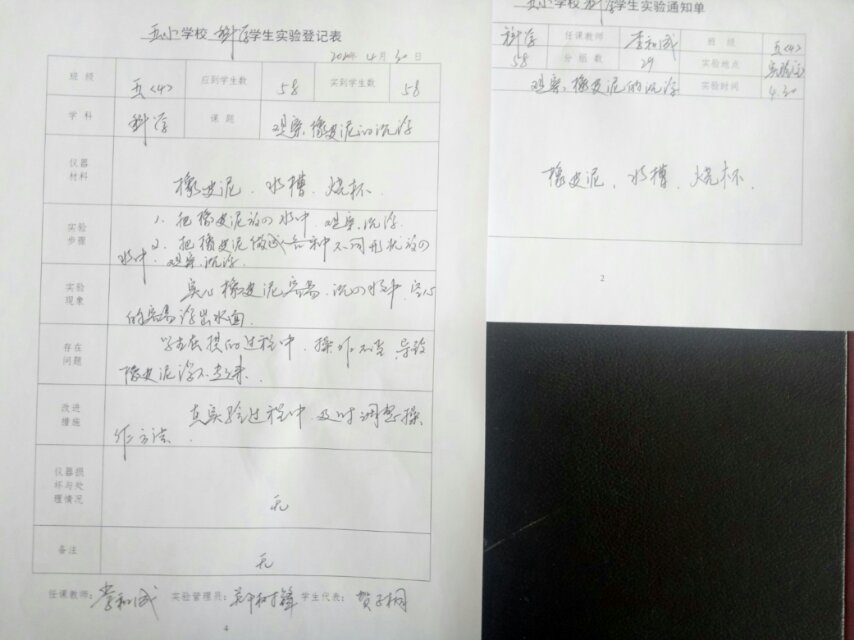 五小学校 科学学生实验登记表
4月30日
班级 五<4> 应到学生数 58 实到学生数 58
学科 科学 课题 观察橡皮泥的沉浮
仪器材料 橡皮泥、水槽、烧杯.
实验步骤 1、把橡皮泥放入水中,观察沉浮.
2、把橡皮泥做成各种不同形状放入
水中,观察沉浮.
实验现象 实心橡皮泥容易沉入水中,空心
的容易浮出水面.
存在问题 学生在摸的过程中,操作不当,导致
橡皮泥浮不起来.
改进措施 在实验过程中,及时调整操
作方法.
仪器损坏与处理情况 无
备注 无
任课教师:李和成 实验管理员: 学生代表:贺子桐
4
五小学校 科学学生实验通知单
科学 任课教师 李和成 班级 五<4>
58 分组数 29 实验地点 实验室
观察橡皮泥的沉浮 实验时间 4.30
橡皮泥、水槽、烧杯.
2